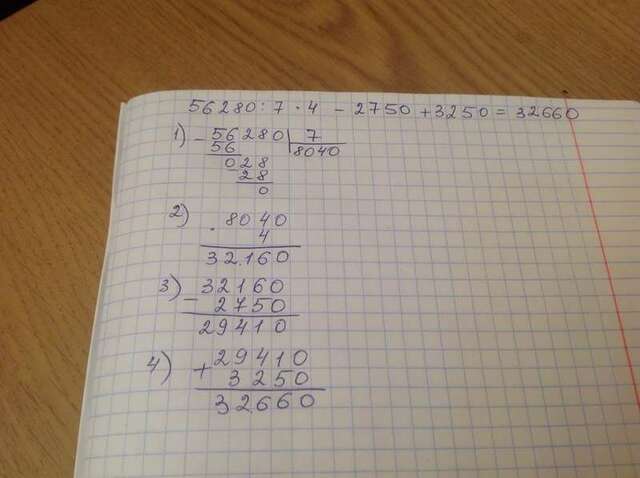 56280 : 7 · 4 - 2750 + 3250 = 32660
1) - 56280 | 7
56 8040
028
28
0
2) 8040
· 4
32.160
3) 32160
- 2750
29410
4) 29410
+ 3250
32660